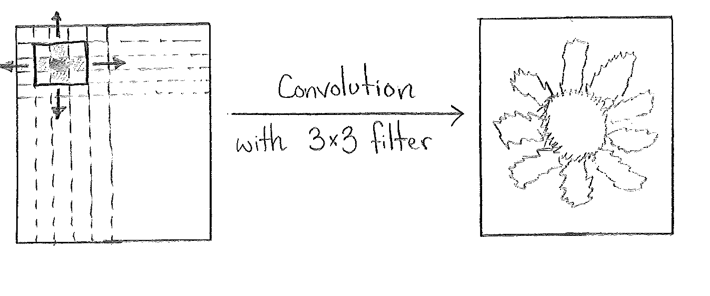 Convolution
with 3×3 filter